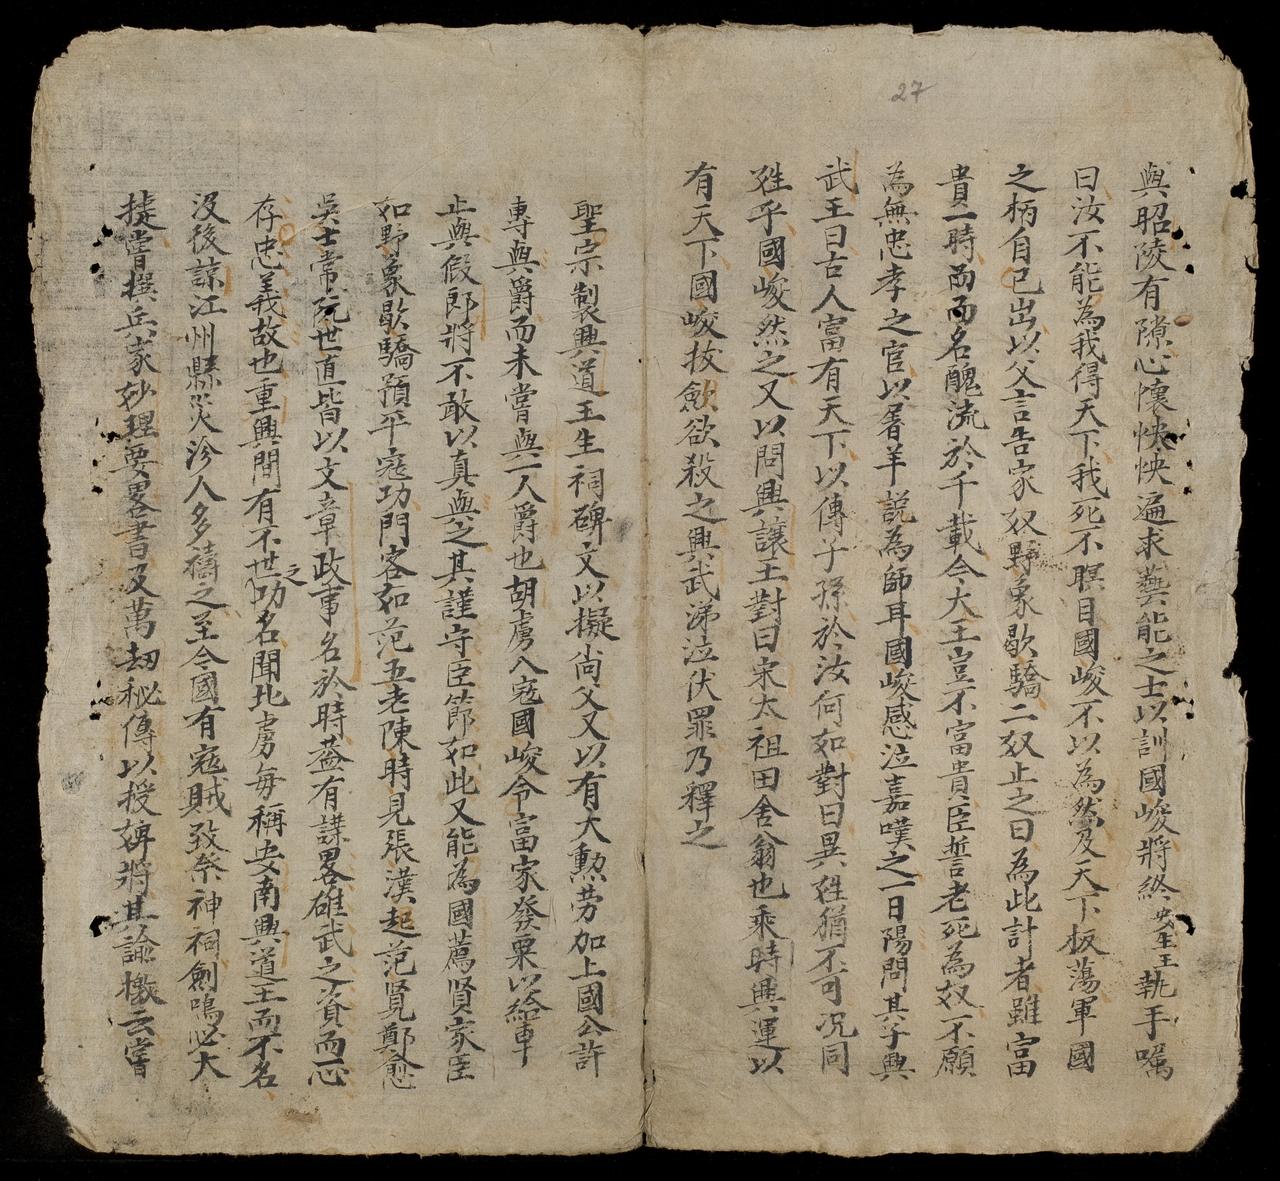 27
與昭陵有隙心懷怏怏遍求藝能之士以訓國峻將終安生王執手囑
曰汝不能為我得天下我死不瞑目國峻不以為然及天下板蕩軍國
之柄自己出以父言告家奴野象歇驕二奴止之曰為此計者雖富
貴一時而名醜流於千載今大王豈不富貴臣誓老死為奴不願
為無忠孝之官以屠羊說為師耳國峻感泣嘉嘆之一日陽問其子興
武王曰古人富有天下以傳子孫於汝何如對曰異姓猶不可况同
姓乎國峻然之又以問興讓王對曰宋太祖田舍翁也乘時興運以
有天下國峻拔劍欲殺之興武涕泣伏罪乃釋之
聖宗製興道王生祠碑文以擬尚父又以有大勲劳加上國公許
專與爵而未嘗與一人爵也胡虜入寇國峻令富家發粟以給軍
止與假郎將不敢以真與之其謹守臣節如此又能為國薦賢家臣
如野象歇驕預平寇功門客如范五老陳時見張漢超范賢鄭愈
吳士常阮世直皆以文章政事名於時盖有謀畧雄武之資而心
存忠義故也重興間有不世之功名聞北虜每稱安南興道王而不名
没後諒江州縣災沴人多禱之至今國有寇賊致祭神祠劍鳴必大
捷嘗撰兵家妙理要畧書及萬刼秘傳以授婢將其諭檄云嘗